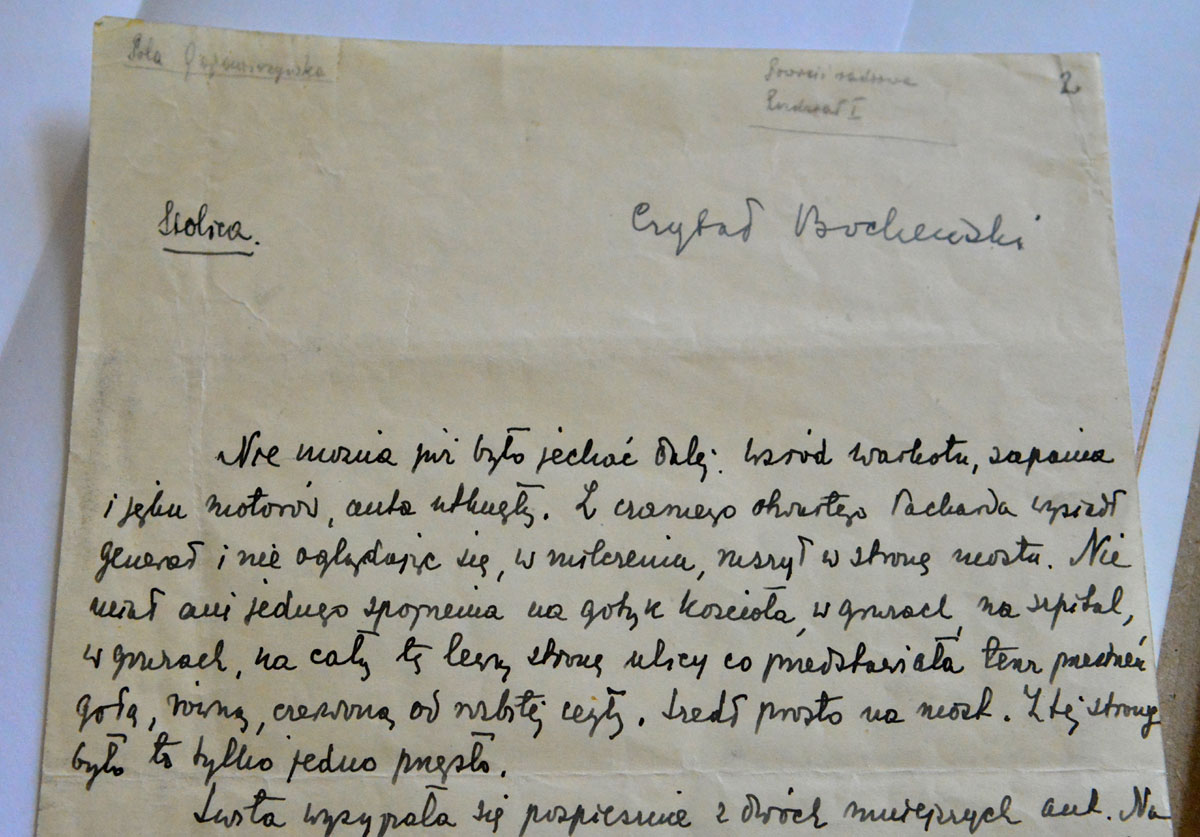 Pola Gojawiczyńska
Powieść radiowa
2.
Rozdział I
Stolica.
Czytał Bocheński
Nie można już było jechać dalej. Wśród warkotu, sapania
i jęku motorów, auta utknęły. Z czarnego otwartego Packarda wysiadł
generał i nie oglądając się, w milczeniu, ruszył w stronę mostu. Nie
miał ani jednego spojrzenia na gotyk kościoła, w gruzach, na szpital,
w gruzach, na całą tę lewą stronę ulicy co przedstawiała teraz przestrzeń
gołą, równą, czerwoną od rozbitej cegły. Szedł prosto na most. Z tej strony
było to tylko jedno przęsło.
Świta wysypała się pospiesznie z dwóch mniejszych aut. Na